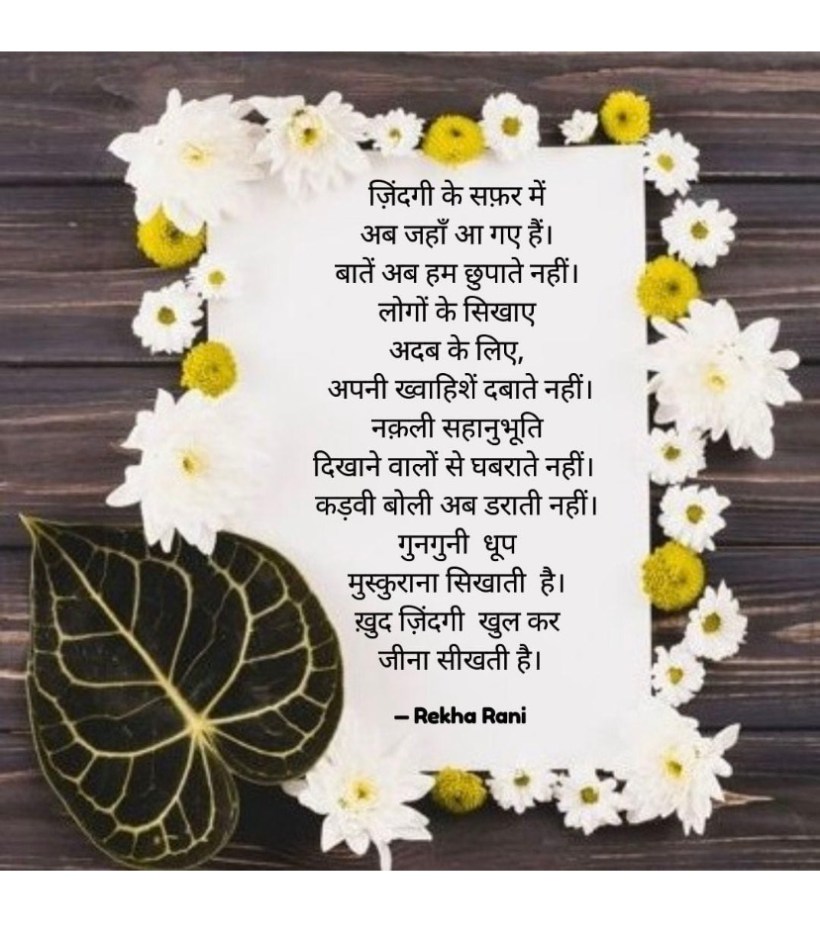 ज़िंदगी के सफ़र में
अब जहाँ आ गए हैं।
बातें अब हम छुपाते नहीं।
लोगों के सिखाए
अदब के लिए,
अपनी ख्वाहिशें दबाते नहीं।
नक़ली सहानुभूति
दिखाने वालों से घबराते नहीं।
कड़वी बोली अब डराती नहीं।
गुनगुनी धूप
मुस्कुराना सिखाती है।
ख़ुद ज़िंदगी खुल कर
जीना सीखती है।
— Rekha Rani